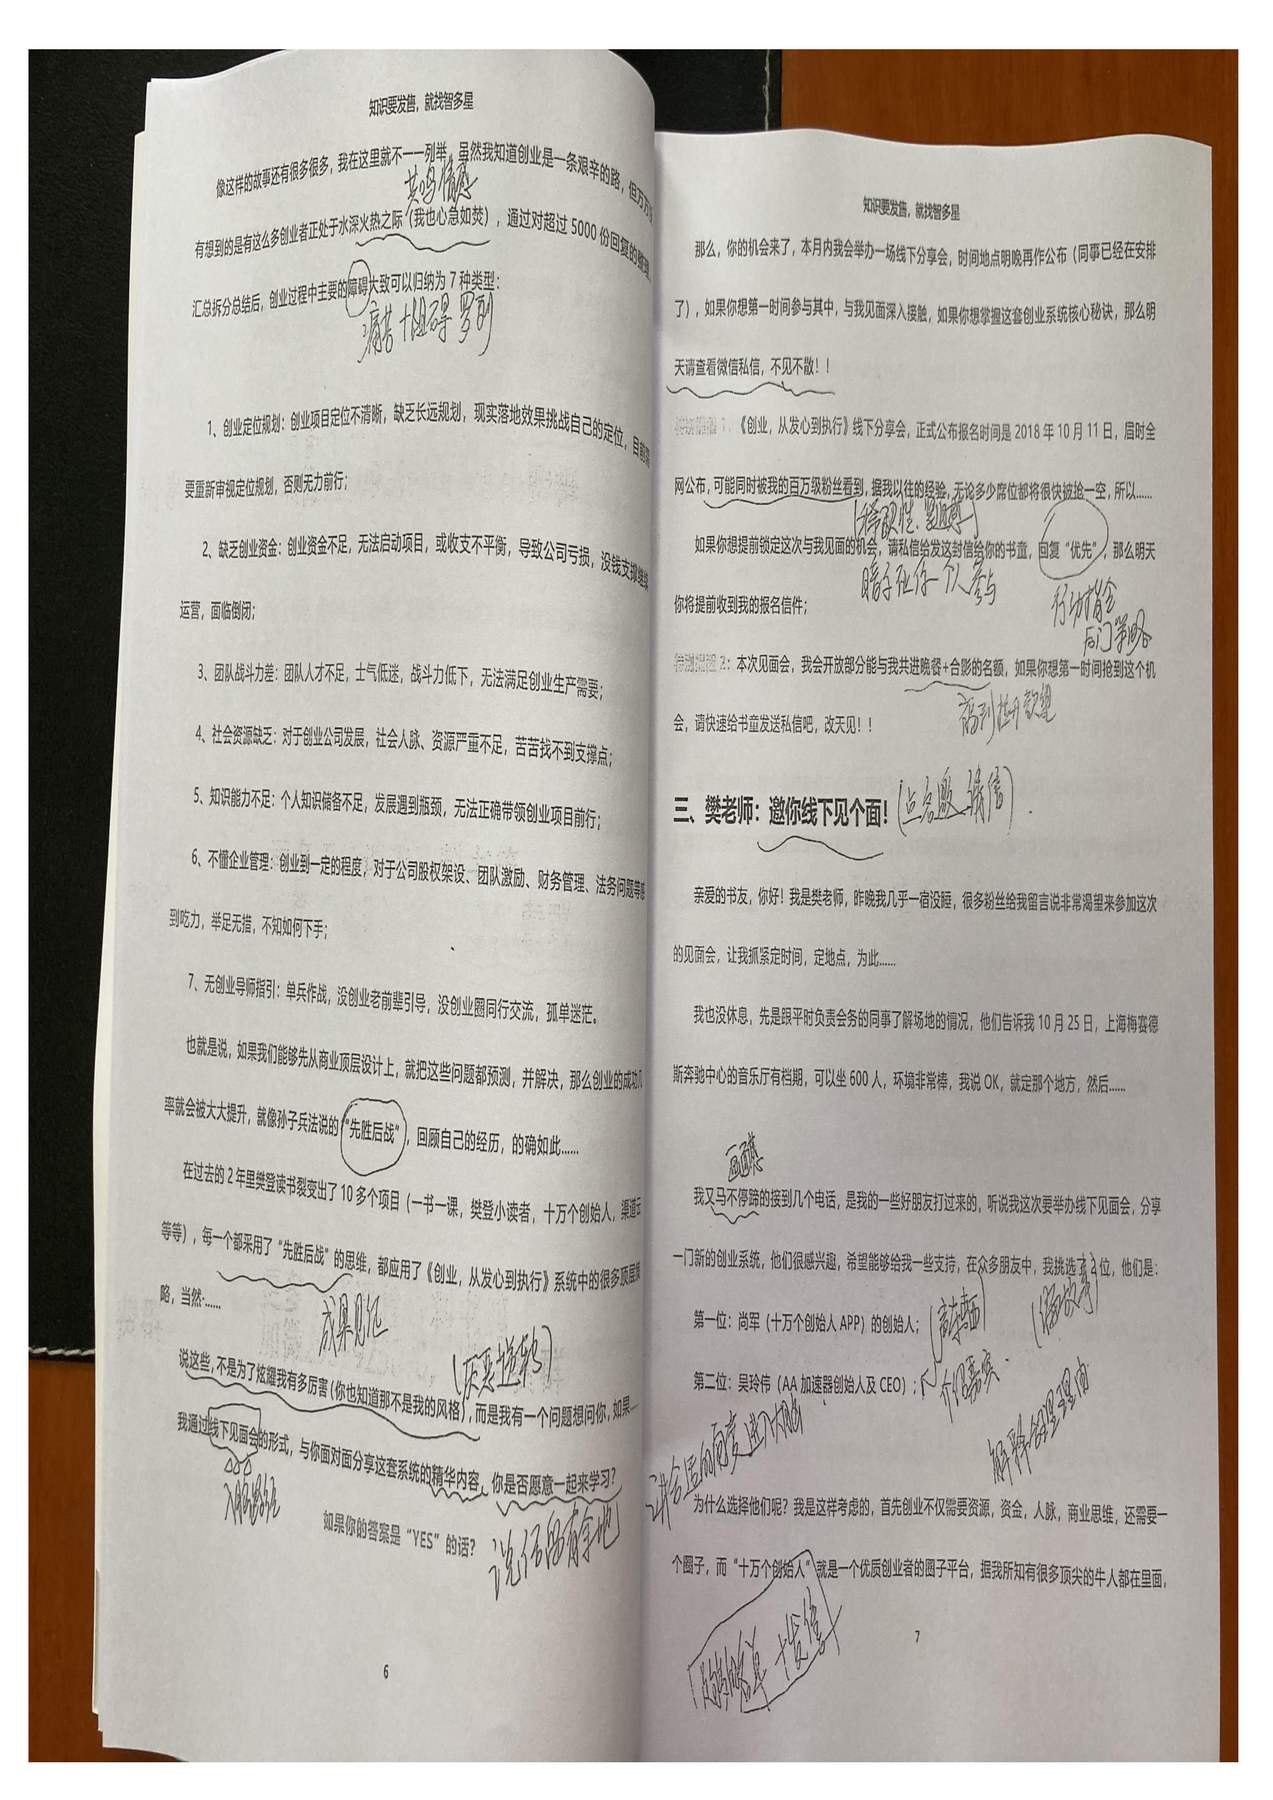 知识要发售，就找智多星
像这样的故事还有很多很多，我在这里就不一一列举，虽然我知道创业是一条艰辛的路，但万万
共鸣情感
有想到的是有这么多创业者正处于水深火热之际（我也心急如焚），通过对超过 5000 份回复的整理，
汇总拆分总结后，创业过程中主要的障碍大致可以归纳为 7 种类型：
痛苦+阻碍罗列
1、创业定位规划：创业项目定位不清晰，缺乏长远规划，现实落地效果挑战自己的定位，目前
要重新审视定位规划，否则无力前行；
2、缺乏创业资金：创业资金不足，无法启动项目，或收支不平衡，导致公司亏损，没钱支撑继续
运营，面临倒闭；
3、团队战斗力差：团队人才不足，士气低迷，战斗力低下，无法满足创业生产需要；
4、社会资源缺乏：对于创业公司发展，社会人脉、资源严重不足，苦苦找不到支撑点；
5、知识能力不足：个人知识储备不足，发展遇到瓶颈，无法正确带领创业项目前行；
6、不懂企业管理：创业到一定的程度，对于公司股权架设、团队激励、财务管理、法务问题等感
到吃力，举足无措，不知如何下手；
7、无创业导师指引：单兵作战，没创业老前辈引导，没创业圈同行交流，孤单迷茫。
也就是说，如果我们能够先从商业顶层设计上，就把这些问题都预测，并解决，那么创业的成功几
率就会被大大提升，就像孙子兵法说的“先胜后战”，回顾自己的经历，的确如此……
在过去的 2 年里樊登读书裂变出了 10 多个项目（一书一课，樊登小读者，十万个创始人，渠道云
等等），每一个都采用了“先胜后战”的思维，都应用了《创业，从发心到执行》系统中的很多顶层策
略，当然……
成果见证
说这些，不是为了炫耀我有多厉害（你也知道那不是我的风格），而是我有一个问题想问你，如果……
我通过线下见面会的形式，与你面对面分享这套系统的精华内容，你是否愿意一起来学习？
如果你的答案是“YES”的话？
说伍留有余地
6
知识要发售，就找智多星
那么，你的机会来了，本月内我会举办一场线下分享会，时间地点明晚再作公布（同事已经在安排
了），如果你想第一时间参与其中，与我见面深入接触，如果你想掌握这套创业系统核心秘诀，那么明
天请查看微信私信，不见不散！！
特别提醒 1：《创业，从发心到执行》线下分享会，正式公布报名时间是 2018 年 10 月 11 日，届时全
网公布，可能同时被我的百万级粉丝看到，据我以往的经验，无论多少席位都将很快被抢一空，所以……
如果你想提前锁定这次与我见面的机会，请私信给发这封信给你的书童，回复“优先”，那么明天
暗示不止你一个人参与
行动指令
后门策略
你将提前收到我的报名信件；
特别提醒 2：本次见面会，我会开放部分能与我共进晚餐+合影的名额，如果你想第一时间抢到这个机
会，请快速给书童发送私信吧，改天见！！
三、樊老师：邀你线下见个面！
（点名邀请信）
亲爱的书友，你好！我是樊老师，昨晚我几乎一宿没睡，很多粉丝给我留言说非常渴望来参加这次
的见面会，让我抓紧定时间，定地点，为此……
我也没休息，先是跟平时负责会务的同事了解场地的情况，他们告诉我 10 月 25 日，上海梅赛德
斯奔驰中心的音乐厅有档期，可以坐 600 人，环境非常棒，我说 OK，就定那个地方，然后……
我又马不停蹄的接到几个电话，是我的一些好朋友打过来的，听说我这次要举办线下见面会，分享
一门新的创业系统，他们很感兴趣，希望能够给我一些支持，在众多朋友中，我挑选了 3 位，他们是：
第一位：尚军（十万个创始人 APP）的创始人；
第二位：吴玲伟（AA 加速器创始人及 CEO）；
介绍嘉宾
解释邀里理由
为什么选择他们呢？我是这样考虑的，首先创业不仅需要资源，资金，人脉，商业思维，还需要一
个圈子，而“十万个创始人”就是一个优质创业者的圈子平台，据我所知有很多顶尖的牛人都在里面，
7